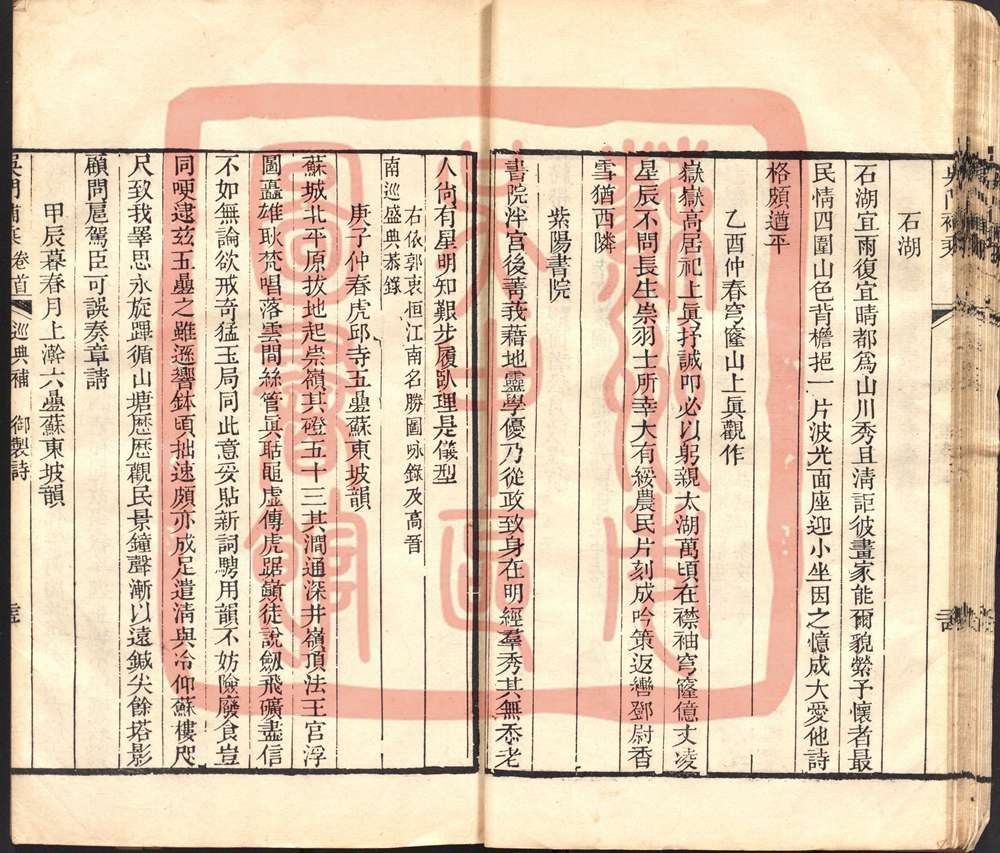 石湖
石湖宜雨復宜晴都爲山川秀且清詎彼畫家能爾貌縈予懷者最
民情四圍山色背檐挹一片波光面座迎小坐因之憶成大愛他詩
格頗遒平
乙酉仲春穹窿山上眞觀作
嶽嶽高居祀上眞抒誠叩必以躬親太湖萬頃在襟袖穹窿億丈凌
星辰不問長生崇羽士所幸大有綏農民片刻成吟策返轡鄧尉香
雪猶酉隣
紫陽書院
書院泮宮後菁莪藉地靈學優乃從政致身在明經羣秀其無忝老
人尙有星明知艱步履臥理是儀型
右依郭衷恒江南名勝圖咏錄及高晉
南巡盛典恭錄
庚子仲春虎邱寺五疊蘇東坡韻
蘇城北平原拔地起崇嶺其磴五十三其澗通深井嶺頂法王宮浮
圖矗雄耿梵唱落雲間絲管眞聒黽虛傳虎踞巓徒說劔飛礦盡信
不如無論欲戒奇猛玉局同此意妥貼新詞騁用韻不妨險廢食豈
同哽逮茲五疊之雖遜響鉢頃拙速頗亦成足遣淸與冷仰蘇樓咫
尺致我睪思永旋蹕循山塘歷歷觀民景鐘聲漸以遠鍼尖餘塔影
顧問扈駕臣可誤奏章請
甲辰暮春月上澣六疊蘇東坡韻
卷首
巡典補 御製詩